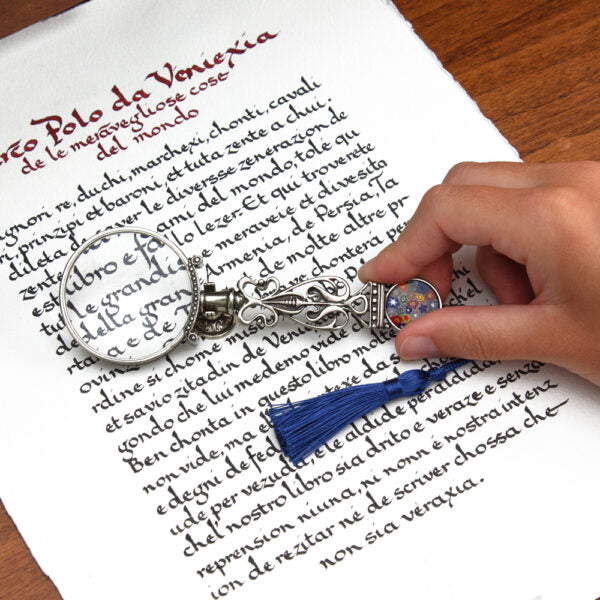 arco Polo da Veniexia
de le meravegliose cose
del mondo
ignori re, duchi, marchexi, chonti, cavali
ri prinzipi et baroni, et tuta zente a chui
dileta de saver le diversse zenerazion de
zente ami del mondo, tolè qu
esto libro e fa lo lezer. Et qui troverete
le grandi e meraveie et divesità
de della gran Armenia, de Persia, Ta
rta a e de T de molte altre pr
ovinz chonterà per
rdine si chome misi
et savio zitadin de Veni
gondo che lui medemo vide
Ben chonta in questo libro molte
non vide, ma et intexe da
e degni de fed
ude per vezuda, e le aldide per aldida,
chel nostro libro sia drito e veraze e senza
reprension niuna, ni nonn è nostra intenz
ion de rezitar né de scriver chossa che
non sia veraxia.